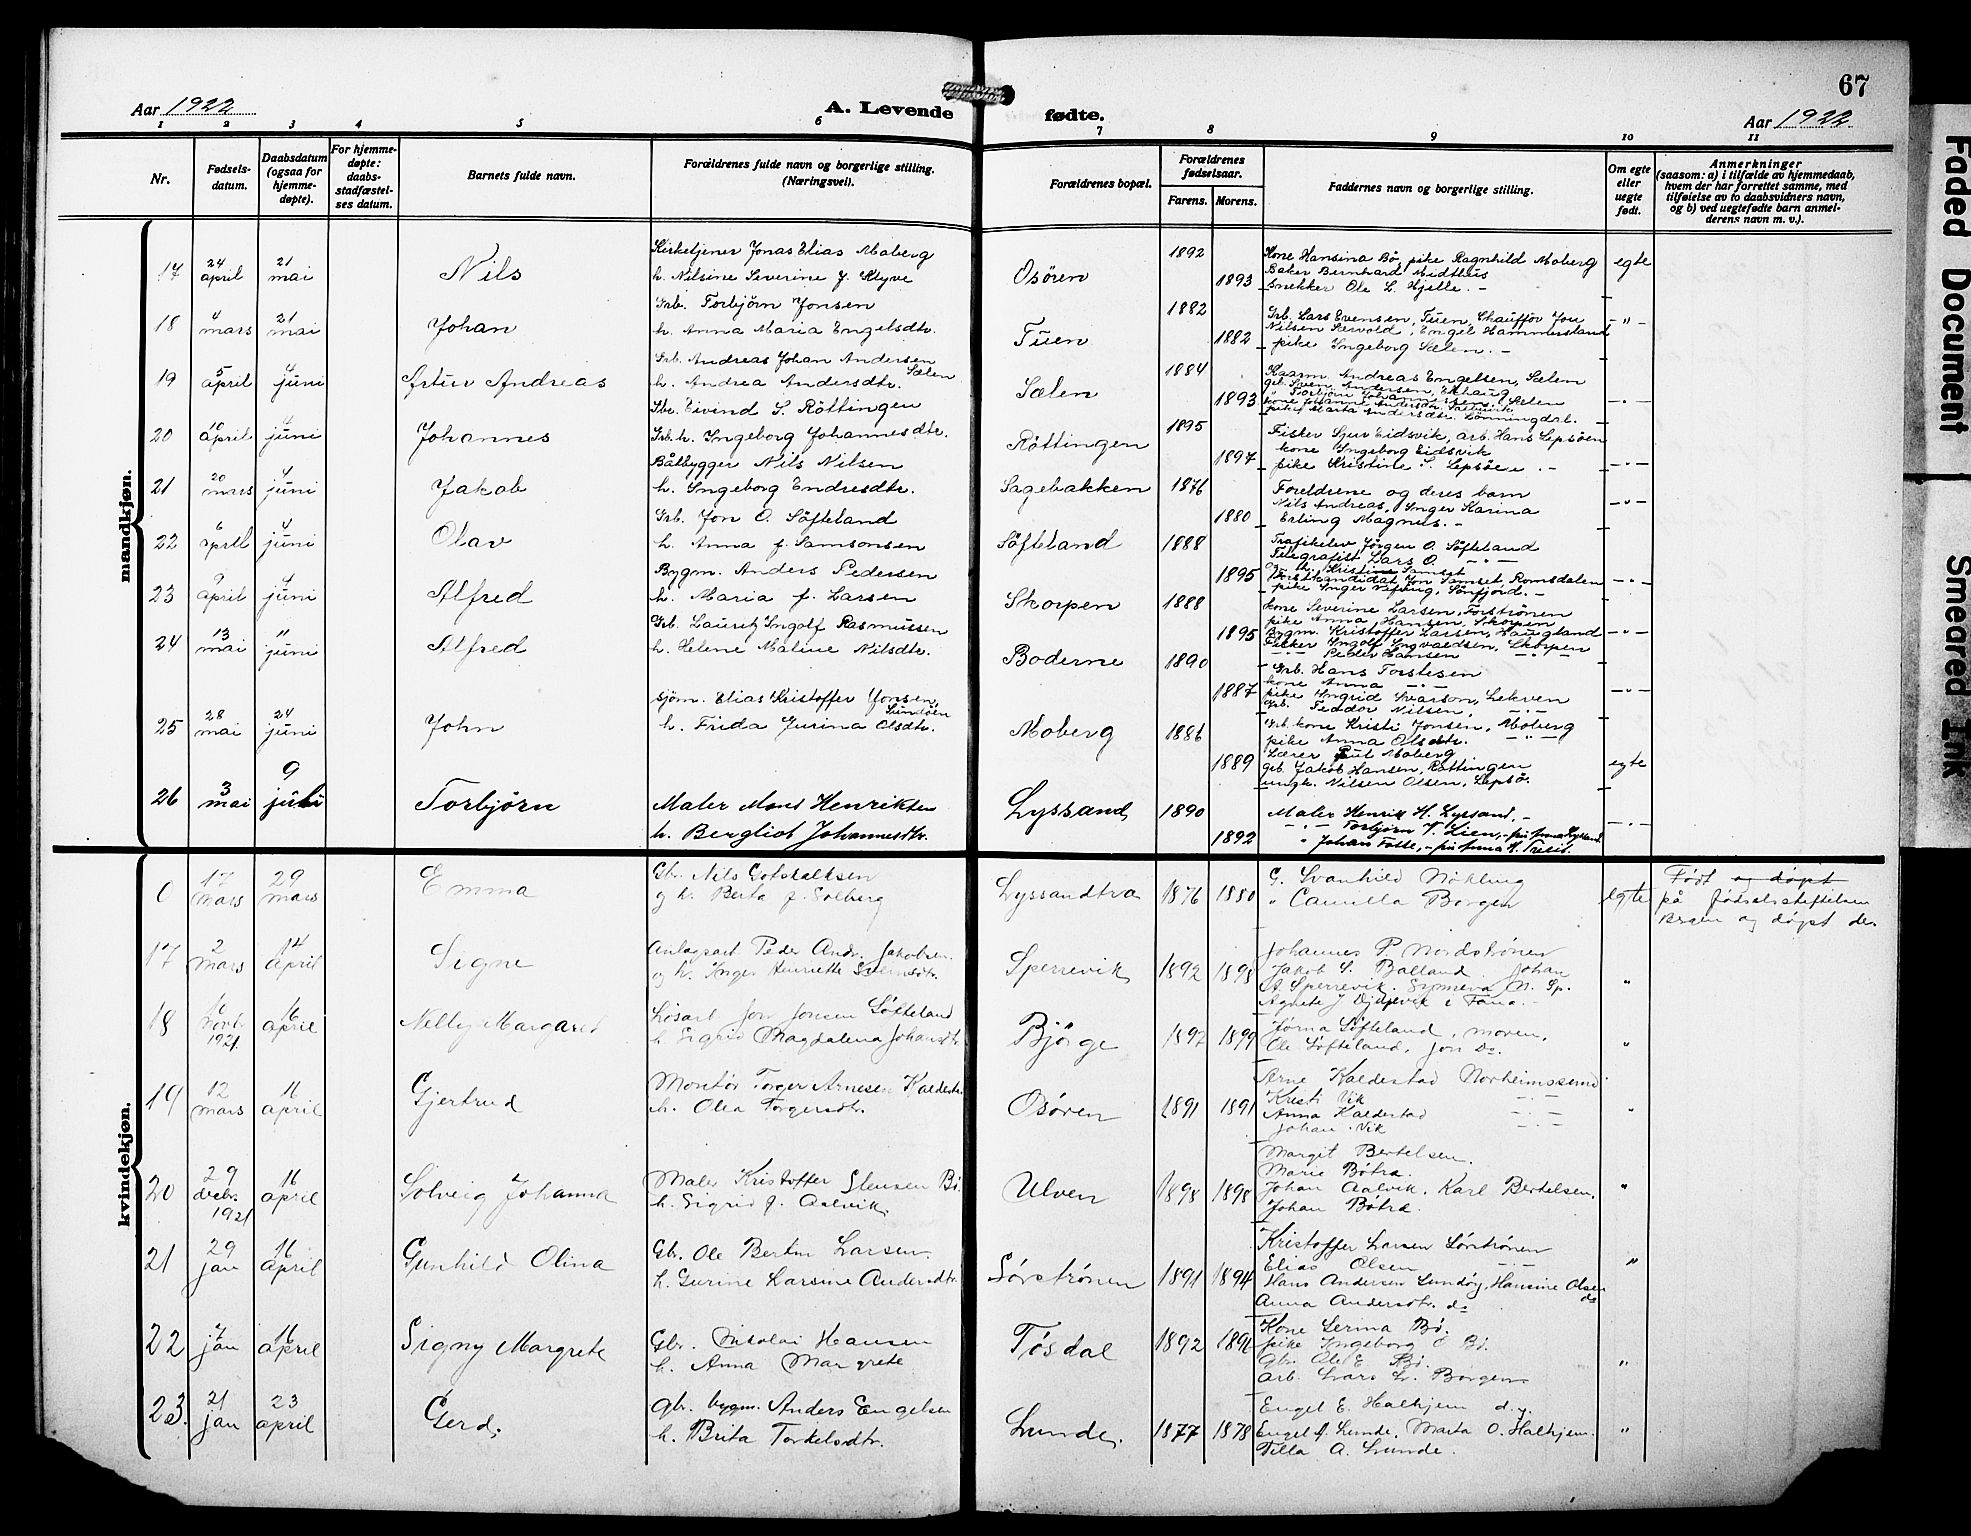 67
Aar 1922
A. Levende fødte.
Aar 1922
1 2 3 4 5 6 7 8 9 10 11
Nr.
Fødsels-
datum.
Daabsdatum
(ogsaa for
hjemme-
døpte).
For hjemme-
døpte:
daabs-
stadfæstel-
ses datum.
Barnets fulde navn.
Forældrenes fulde navn og borgerlige stilling.
(Næringsvei).
Forældrenes bopæl.
Forældrenes
fødselsaar.
Farens. Morens.
Faddernes navn og borgerlige stilling.
Om egte
eller
uegte
født.
Anmerkninger
(saasom: a) i tilfælde av hjemmedaab,
hvem der har forrettet samme, med
tilføielse av to daabsvidners navn,
og b) ved uegtefødte barn anmel-
derens navn m. v.).
mandkjøn.
17 24 april 21 mai Nils
Kirketjener Jonas Elias Moberg
h. Nilsine Severine f. Klyve
Osören 1892 1893
Kone Hansina Bø, pike Ragnhild Moberg
Baker Bernhard Midthus
Snekker Ole L. Hjelle. -
egte
18 4 mars 21 mai Johan
Grb. Torbjörn Jonsen
h. Anna Maria Engelsdtr.
Tuen 1882 1882
Grb. Lars Evensen, Tuen, Chauffør Jon
Nilsen Særvold, Engel Hammersland
pike Ingeborg Sælen. -
-"-
19 5 april 4 juni Artur Andreas
Grb. Andreas Johan Andersen Sælen
h. Andrea Andersdtr.
Sælen 1884 1893
Kaarm. Andreas Engelsen, Sælen
pike Marta Andersdtr. Lønningdal. -
-"-
20 16 april 4 juni Johannes
Gbr. Eivind S. Röttingen
Grb. h. Ingeborg Johannesdtr.
Röttingen 1895 1897
Fisker Sjur Eidsvik, arb. Hans Lepsöen
kone Ingeborg Eidsvik
pike Kristine S. Lepsöe -
-"-
21 20 mars 4 juni Jakob
Båtbygger Nils Nilsen
h. Ingeborg Endresdtr.
Sagebakken 1876 1880
Foreldrene og deres barn
Nils Andreas, Inger Karina
Erling Magnus. -
-"-
22 6 april 4 juni Olav
Grb. Jon O. Söfteland
h. Anna f. Samsonsen
Söfteland 1888 1895
Trafikelev Jørgen O. Söfteland
Telegrafist Lars O. -"-
Forstkandidat Jon Samset, Romsdalen
-"-
23 9 april 4 juni Alfred
Bygm. Anders Pedersen
h. Maria f. Larsen
Skorpen 1888 1895
kone Severine Larsen, Forströnen
pike Anna Hansen, Skorpen
Bygm. Kristoffer Larsen, Haugland
Fisker Ingolf Ingvaldsen, Skorpen
-"- Peder Hansen -"-
-"-
24 13 mai 11 juni Alfred
Grb. Lauritz Ingolf Rasmussen
h. Helene Maline Nilsdtr.
Boderne 1890 1887
Grb. Hans Torstesen
kone Anna -"-
pike Ingrid Ivarson, Lekven
Grb. Teodor Nilsen, -"-
-"-
25 28 mai 24 juni John
sjöm. Elias Kristoffer Jonsen, Sundöen
h. Frida Gurina Olsdtr.
Moberg 1886 1889
Grb. kone Kristi Jonsen, Moberg
pike Anna Olsdtr. -"-
Lærer Moberg
gb. Jakob Hansen, Röttingen
ungk. Nilsen Olsen, Lepsö.
egte
26 3 mai 9 juli Torbjörn
Maler Mons Henriksen
h. Bergliot Johannesdtr.
Lyssand 1890 1892
Maler Henrik H. Lyssand, -
-"- Torbjörn V. Lien, - pi. Anna Lyssand
" Johan
-"-
kvindekjøn.
0 17 mars 29 mars Emma
Gbr. Nils Gotskalksen
og h. Berta f. Solberg
Lyssandtræ 1876 1880
G. Svanhild Nökling
" Camilla Borgen
egte
Født og døpt
på fødselsstiftelsen
Bergen og døpt der
17 2 mars 14 april Signe
Anlægsarb. Peder Andr. Jakobsen
og h. Inger Henriette
Sperrevik 1892 1898
Johannes P. Nordströnen
Jakob S. Balland. Johan
A. Sperrevik. Synneva N. Sp.
Agnete J i Fana. -
"
18 16 1921 16 april Nelly Margared
Løsarb. Jon Jonsen Söfteland
h Sigrid Magdalena Johansdtr
Bjørge 1897 1899
Jørna Söfteland, moren,
Ole Söfteland, Jon Do.
"
19 12 mars 16 april Gjertrud
Montör Torger Arnesen Kaldest.
h. Olea Torgersdtr.
Osören 1891 1891
Arne Kaldestad Norheimssund
Kristi Vik -"-
Anna Kaldestad -"-
Johan Vik -"-
"
20 29 decbr. 1921 16 april Solveig Johanna
Maler Kristoffer Stensen Bö.
h. Sigrid f. Aalvik.
Ulven 1898 1898
Margit Bertelsen.
Marie Böträ.
Johan Aalvik, Karl Bertelsen,
Johan Böträ.
"
21 29 jan 16 april Gunhild Olina
Gbr. Ole Bertin Larsen.
h. Gurine Larsine Andersdtr
Sörströnen 1891 1894
Kristoffer Larsen Sörströnen
Elias Olsen -"-
Hans Andersen Sundöy, Hansine Olsen do
Anna Andersdtr. do
"
22 7 jan 16 april Signy Margrete
Gbr. Nikolai Hansen
h. Anna Margrete
Tøsdal 1892 1896
Kone Serina Bö.
pike Ingeborg E Bö.
Gbr. Ole E Bö.
arb. Lars L. Borgen
"
23. 21 jan 23 april Gerd.
Gbr. bygm. Anders Engelsen
h. Brita Torkelsdtr.
Lunde. 1877 1878
Engel E. Halhjem d.y.
Engel A. Lunde, Marta O. Halhjem.
Tilla A. Lunde.
"
Faded Document
Smeared Ink